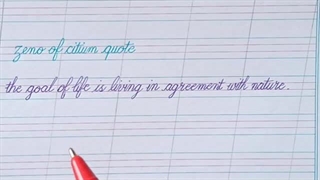 zeno of citium quote
the goal of life is living in agreement with nature.